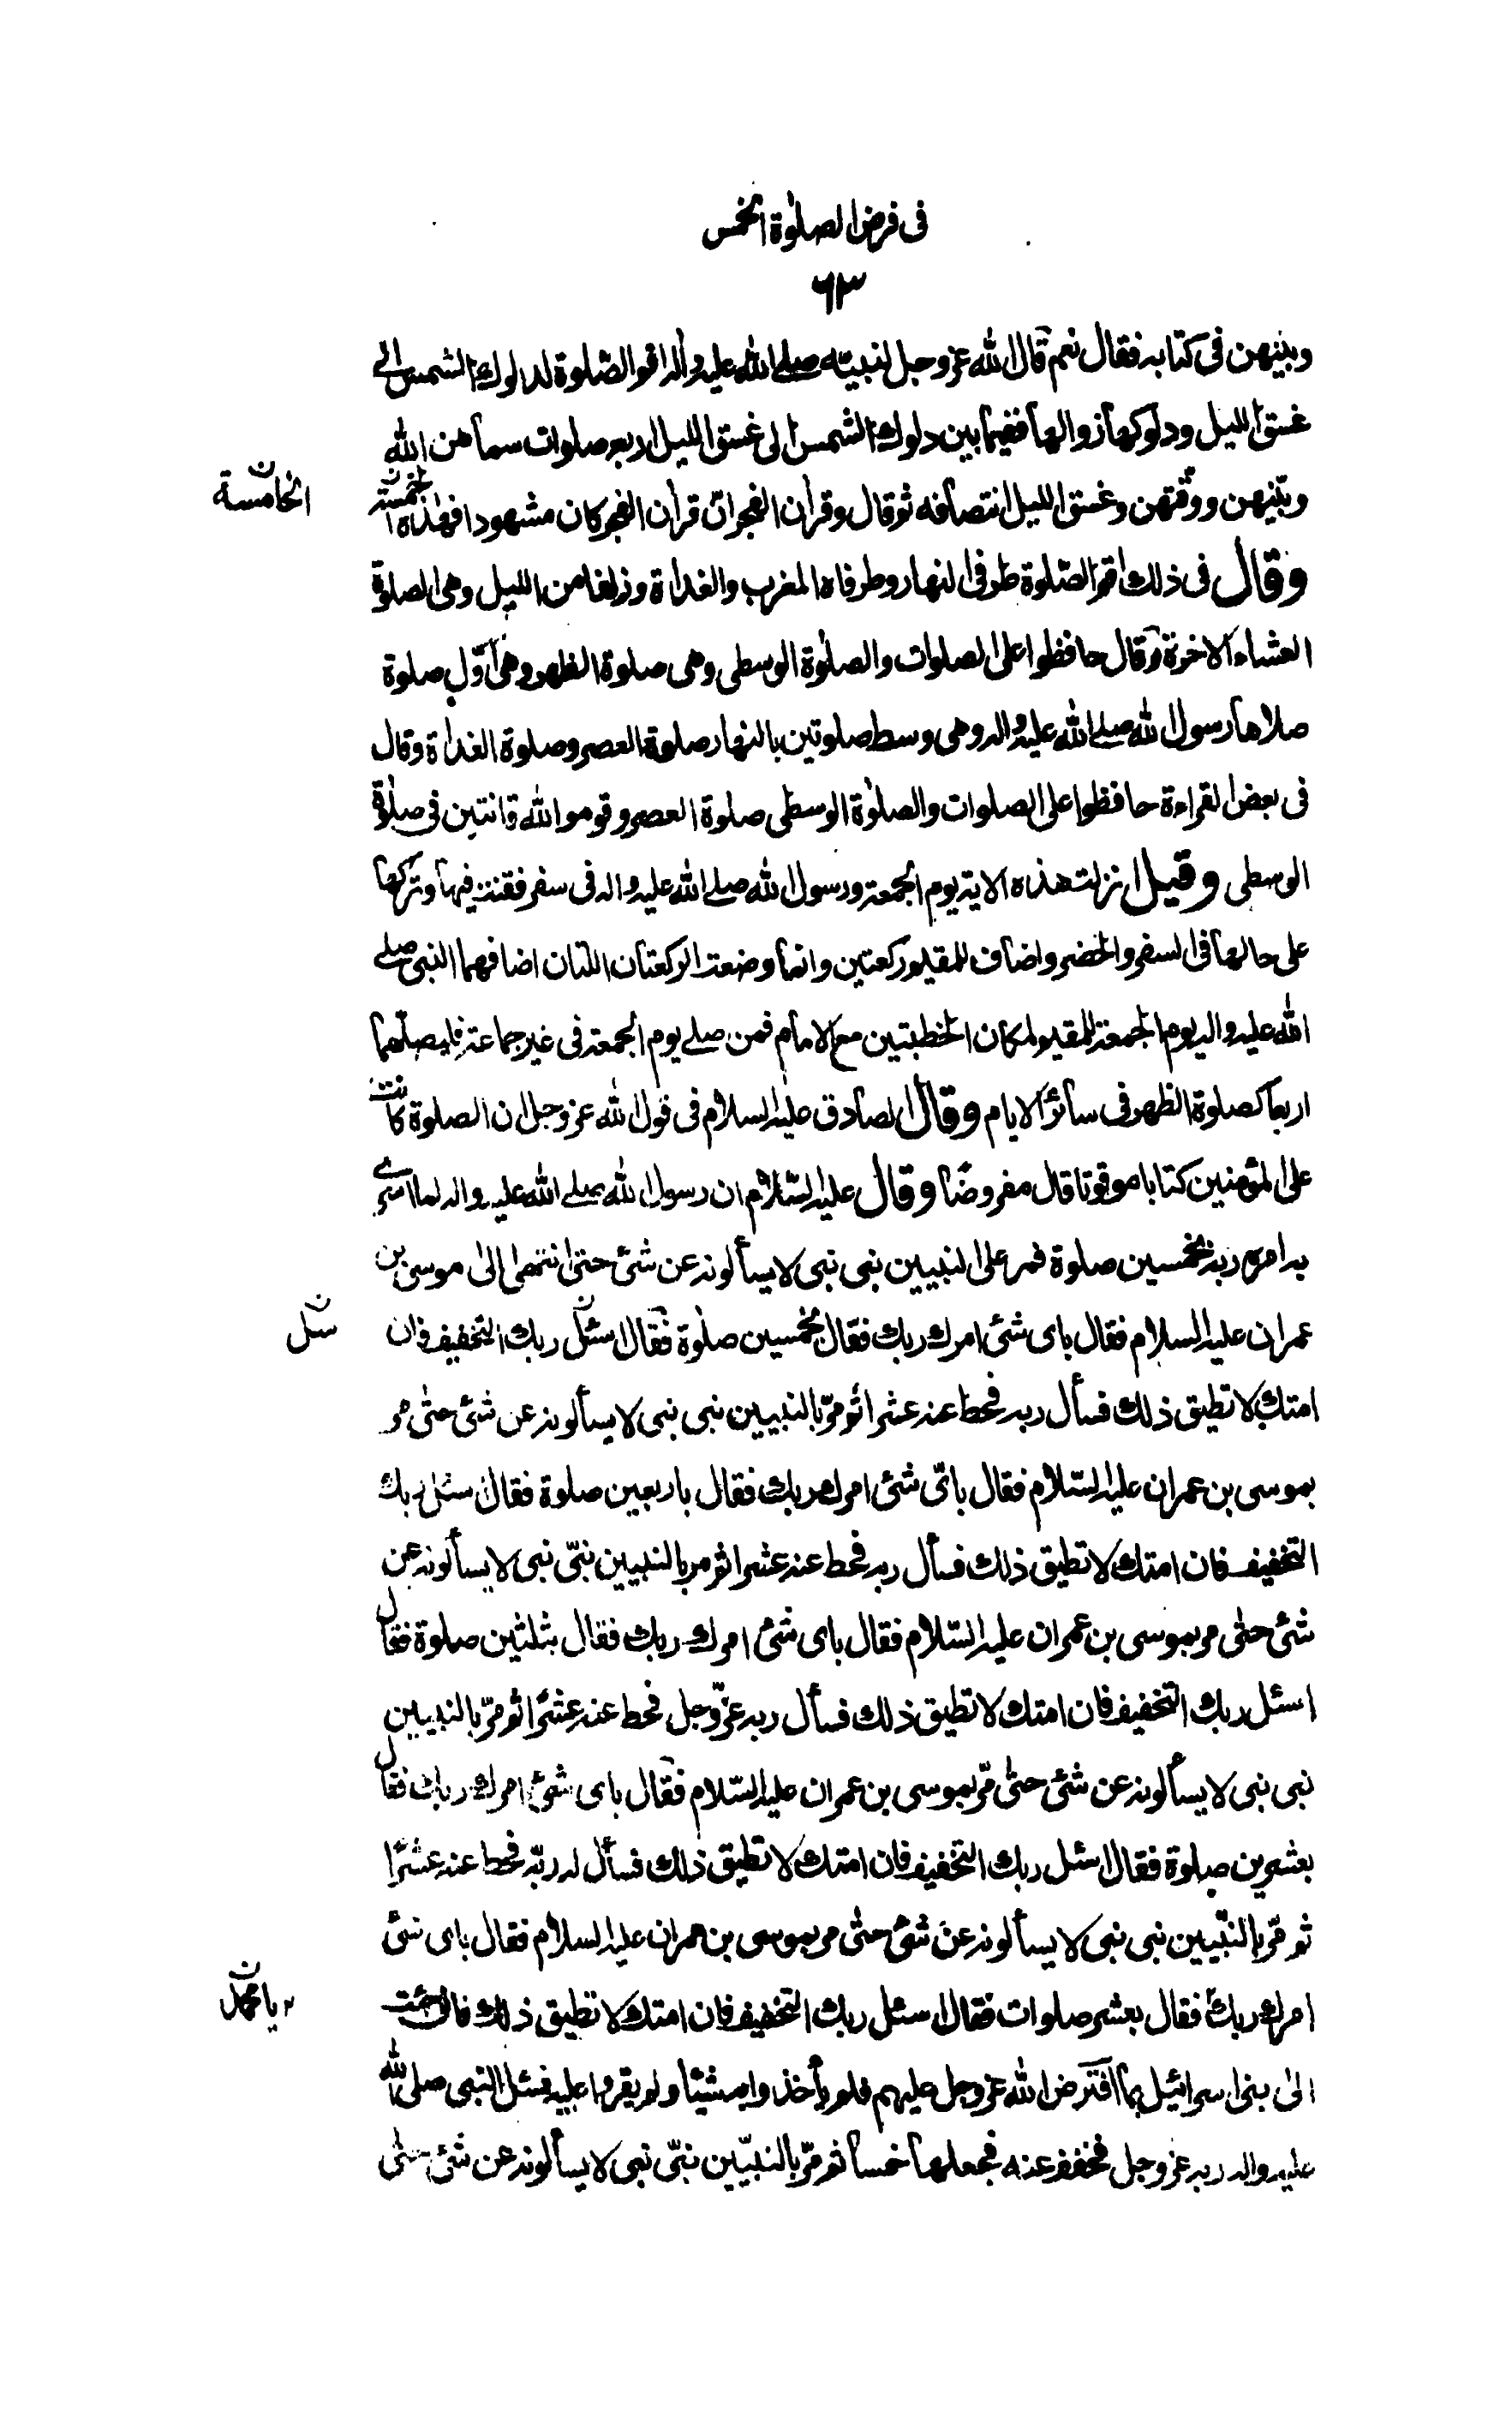 فى فرض الصلوٰة الخمس
٦٣
وبينهن فى كتابه فقال نعم قال الله عز وجل لنبيّه صلے الله عليه واله اقم الصّلوة لدلوك الشمس الے
غسق الليل ودلوكها زوالها ففيما بين دلوك الشمس الى غسق الليل اربع صلوات سماهن الله
وبيّنهن ووقتهن وغسق الليل انتصافه ثم قال وقران الفجر انّ قران الفجر كان مشهودا فهٰذه الخمسة
الخامسة ن
وقال فى ذلك اقم الصّلوة طرفى النهار وطرفاه المغرب والغداة وزلفا من الليل وهى الصلوٰة
العشاء الاخرة وقال حافظوا على الصلوات والصلوٰة الوسطى وهى صلوة الظهر وهى اوّل صلوة
صلاها رسول الله صلے الله عليه واله وهى وسط صلوتين بالنهار صلوة العصر وصلوة الغداة وقال
فى بعض القراءة حافظوا على الصلوات والصلوٰة الوسطى صلوة العصر وقوموا لله قانتين فى صلوٰة
الوسطى وقيل انزلت هذه الاية يوم الجمعة ورسول الله صلے الله عليه واله فى سفر فقنت فيها وتركها
على حالها فى السفر والحضر واضاف للمقيم ركعتين وانما وضعت الركعتان اللتان اضافهما النبى صلے
الله عليه واله يوم الجمعة للمقيم لمكان الخطبتين مع الامام فمن صلے يوم الجمعة فى غير جماعة فليصلّها
اربعا كصلوة الظهر فى سائر الايام وقال الصادق عليه السلام فى قول الله عز وجل ان الصلوة كانت
على المؤمنين كتابا موقوتا قال مفروضًا وقال عليه السّلام ان رسول الله صلے الله عليه واله لما اسرے
به امره ربه بخمسين صلوة فمر على النبيين نبى نبى لا يسألونه عن شئ حتى انتهى الىٰ موسى بن
عمران عليه السلام فقال باى شئ امرك ربك فقال بخمسين صلوٰة فقال اسئل ربك التخفيف فان
سل ن
امتك لا تطيق ذلك فسأل ربه فحط عنه عشرا ثم مرّ بالنبيين نبى نبى لا يسألونه عن شئ حتٰى مر
بموسى بن عمران عليه السّلام فقال باىّ شئ امرك ربك فقال باربعين صلوة فقال سئل ربك
التخفيف فان امتك لا تطيق ذلك فسأل ربه فحط عنه عشرا ثم مر بالنبيين نبىّ نبى لا يسألونه عن
شئ حتٰى مر بموسى بن عمران عليه السّلام فقال باى شئ امرك ربك فقال بثلثين صلوة فقال
اسئل ربك التخفيف فان امتك لا تطيق ذلك فسأل ربه عزّ وجل فحط عنه عشرًا ثم مرّ بالنبيين
نبى نبى لا يسألونه عن شئ حتٰى مرّ بموسى بن عمران عليه السّلام فقال باى شئ امرك ربك فقال
بعشرين صلوة فقال اسئل ربك التخفيف فان امتك لا تطيق ذلك فسأل له ربّه فحط عنه عشرًا
ثم مرّ بالنبّيين نبى نبى لا يسألونه عن شئ حتٰى مر بموسى بن عمران عليه السلام فقال باى شئ
امرك ربك فقال بعشر صلوات فقال اسئل ربك التخفيف فان امتك لا تطيق ذلك فانى جئت
يا محمد ن
الىٰ بنى اسرائيل بما افترض الله عز وجل عليهم فلم يأخذوا به شيئًا ولم يقروا عليه فسئل النبى صلى الله
عليه واله ربه عز وجل فخفف عنه فجعلها خمسا ثم مرّ بالنبيّين نبىّ نبى لا يسألونه عن شئ حتٰى